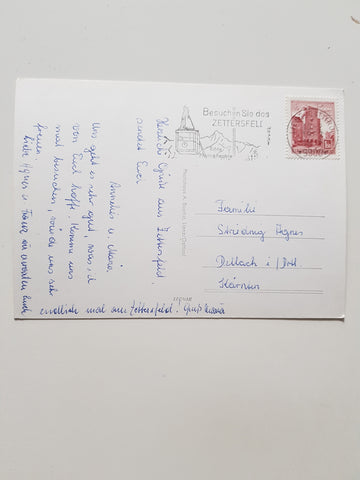 Besuchen Sie das
ZETTERSFELD
Herzliche Grüße aus Zettersfeld
sendet Euch
Annelies u. Maria
Uns geht es sehr gut, was ich
von Euch hoffe. Kommt uns
mal besuchen, würde uns sehr
freuen.
Liebe Agnes u. Franz, wir warten Euch
endlich mal am Zettersfeld! Gruß Maria
Familie
Strieding Agnes
Dellach i/Drtl.
Kärnten